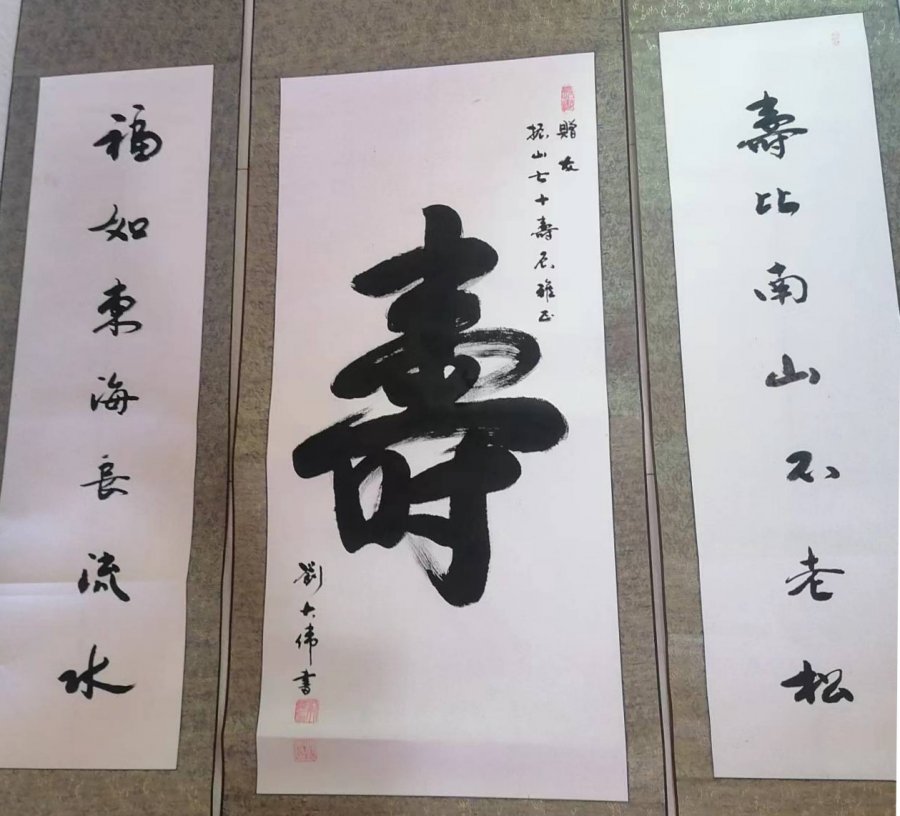 壽比南山不老松
贈友
振山七十壽辰雅正
壽
劉大偉書
福如東海長流水